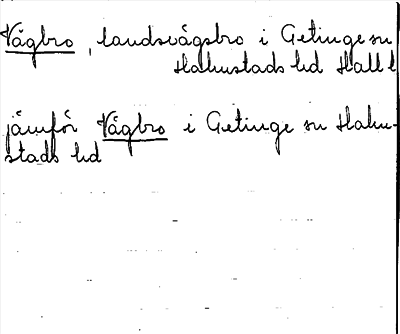 Vägbro, landsvägsbro i Getinge sn
Halmstads hd Hall l
jämför Vägbro i Getinge sn Halm-
stads hd